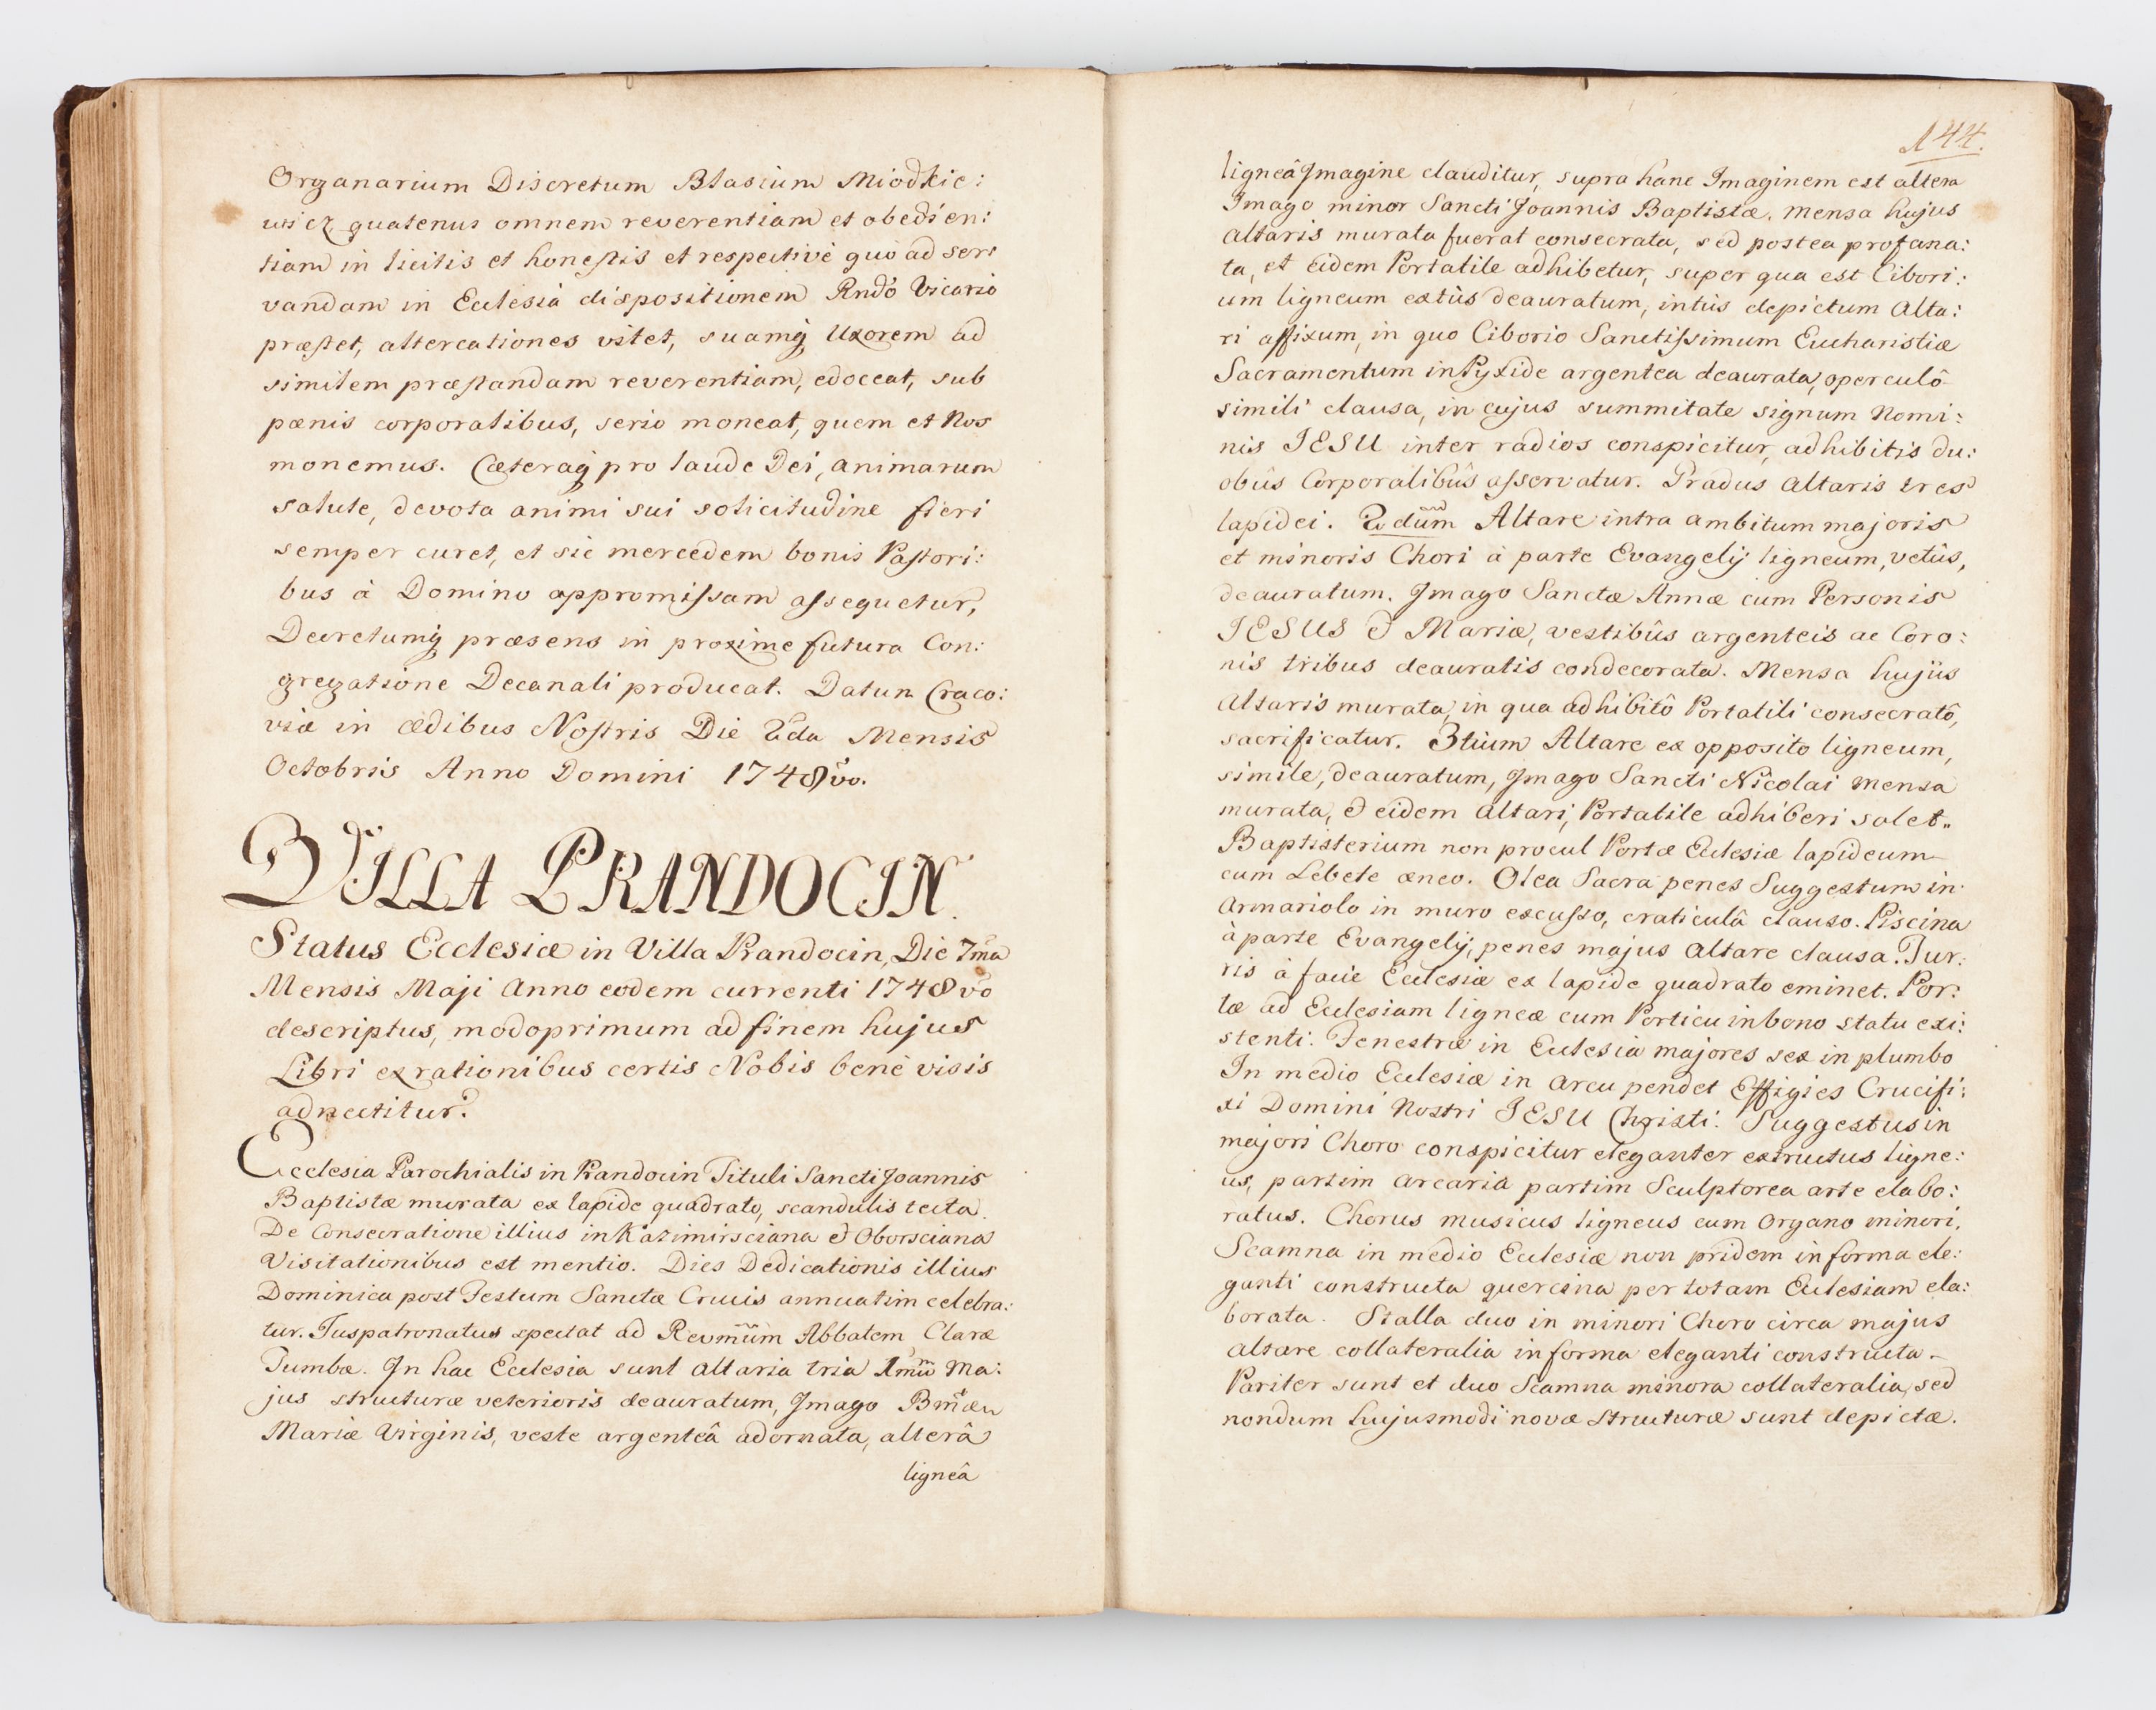 Organarium Discretum Blasium Miodkie:
wicz quatenus omnem reverentiam et obedien:
tiam in licitis et honestis et respectivè quò ad ser:
vandam in Ecclesiâ dispositionem Rndo Vicario
præstet, altercationes vitet, suamq Uxorem ad
similem præstandam reverentiam, edoceat, sub
pœnis corporalibus, serio moneat, quem et Nos
monemus. Cæteraq pro laude Dei, animarum
salute, devota animi sui solicitudine fieri
semper curet, et sic mercedem bonis Pastori:
bus à Domino appromissam assequetur,
Decretumq præsens in proxime futura Con:
gregatione Decanali producat. Datum Craco:
viæ in Ædibus Nostris Die 2da Mensis
Octobris Anno Domini 1748vo.
VILLA PRANDOCIN.
Status Ecclesiæ in Villa Prandocin, Die 7ma
Mensis Maji Anno eodem currenti 1748vo
descriptus, modoprimum ad finem hujus
Libri ex rationibus certis Nobis benè visis
adnectitur.
Ecclesia Parochialis in Prandocin Tituli Sancti Joannis
Baptistæ murata ex lapide quadrato, scandulis tecta.
De Consecratione illius in Kazimirsciana & Oborsciana
Visitationibus est mentio. Dies Dedicationis illius
Dominica post Festum Sanctæ Crucis annuatim celebra:
tur. Juspatronatus spectat ad Revmum Abbatem Claræ
Tumbæ. In hac Ecclesia sunt Altaria tria 1mu Ma:
jus structuræ veterioris deauratum, Imago Bmæ
Mariæ Virginis, veste argenteâ adornata, alterâ
ligneâ
144.
ligneâ Imagine clauditur, supra hanc Imaginem est altera
Imago minor Sancti Joannis Baptistæ. Mensa hujus
Altaris murata fuerat consecrata, sed postea profana:
ta, et eidem Portatile adhibetur, super qua est Cibori:
um ligneum extùs deauratum, intùs depictum Alta:
ri affixum, in quo Ciborio Sanctissimum Eucharistiæ
Sacramentum in Pyxide argentea deaurata, operculô
simili clausa, in cujus summitate signum Nomi:
nis IESU inter radios conspicitur, adhibitis du:
obûs Corporalibûs asservatur. Gradus Altaris tres
lapidei. 2dum Altare intra ambitum majoris
et minoris Chori à parte Evangelij ligneum, vetûs,
deauratum. Imago Sanctæ Annæ cum Personis
IESUS & Mariæ, vestibûs argenteis ac Coro:
nis tribus deauratis condecorata. Mensa hujûs
Altaris murata, in qua adhibitô Portatili consecratô,
sacrificatur. 3tium Altare ex opposito ligneum,
simile, deauratum, Imago Sancti Nicolai Mensa
murata, & eidem Altari, Portatile adhiberi solet.
Baptisterium non procul Portæ Ecclesiæ lapideum
cum Lebete æneo. Olea Sacra penes Suggestum in
Armariolo in muro excusso, craticulâ clauso. Piscina
à parte Evangelij, penes majus Altare clausa. Tur:
ris à facie Ecclesiæ ex lapide quadrato eminet. Por:
tæ ad Ecclesiam ligneæ cum Porticu in bono statu exi:
stenti. Fenestræ in Ecclesia majores sex in plumbo
In medio Ecclesiæ in Arcu pendet Effigies Crucifi:
xi Domini Nostri IESU Christi. Suggestus in
majori Choro conspicitur eleganter extructus ligne:
us, partim Arcaria partim Sculptorea arte elabo:
ratus. Chorus musicus ligneus cum Organo minori.
Scamna in medio Ecclesiæ non pridem in forma ele:
ganti constructa quercina per totam Ecclesiam ela:
borata. Stalla duo in minori Choro circa majus
Altare collateralia in forma eleganti constructa
Pariter sunt et duo Scamna minora collateralia, sed
nondum hujusmodi novæ structuræ sunt depictæ.